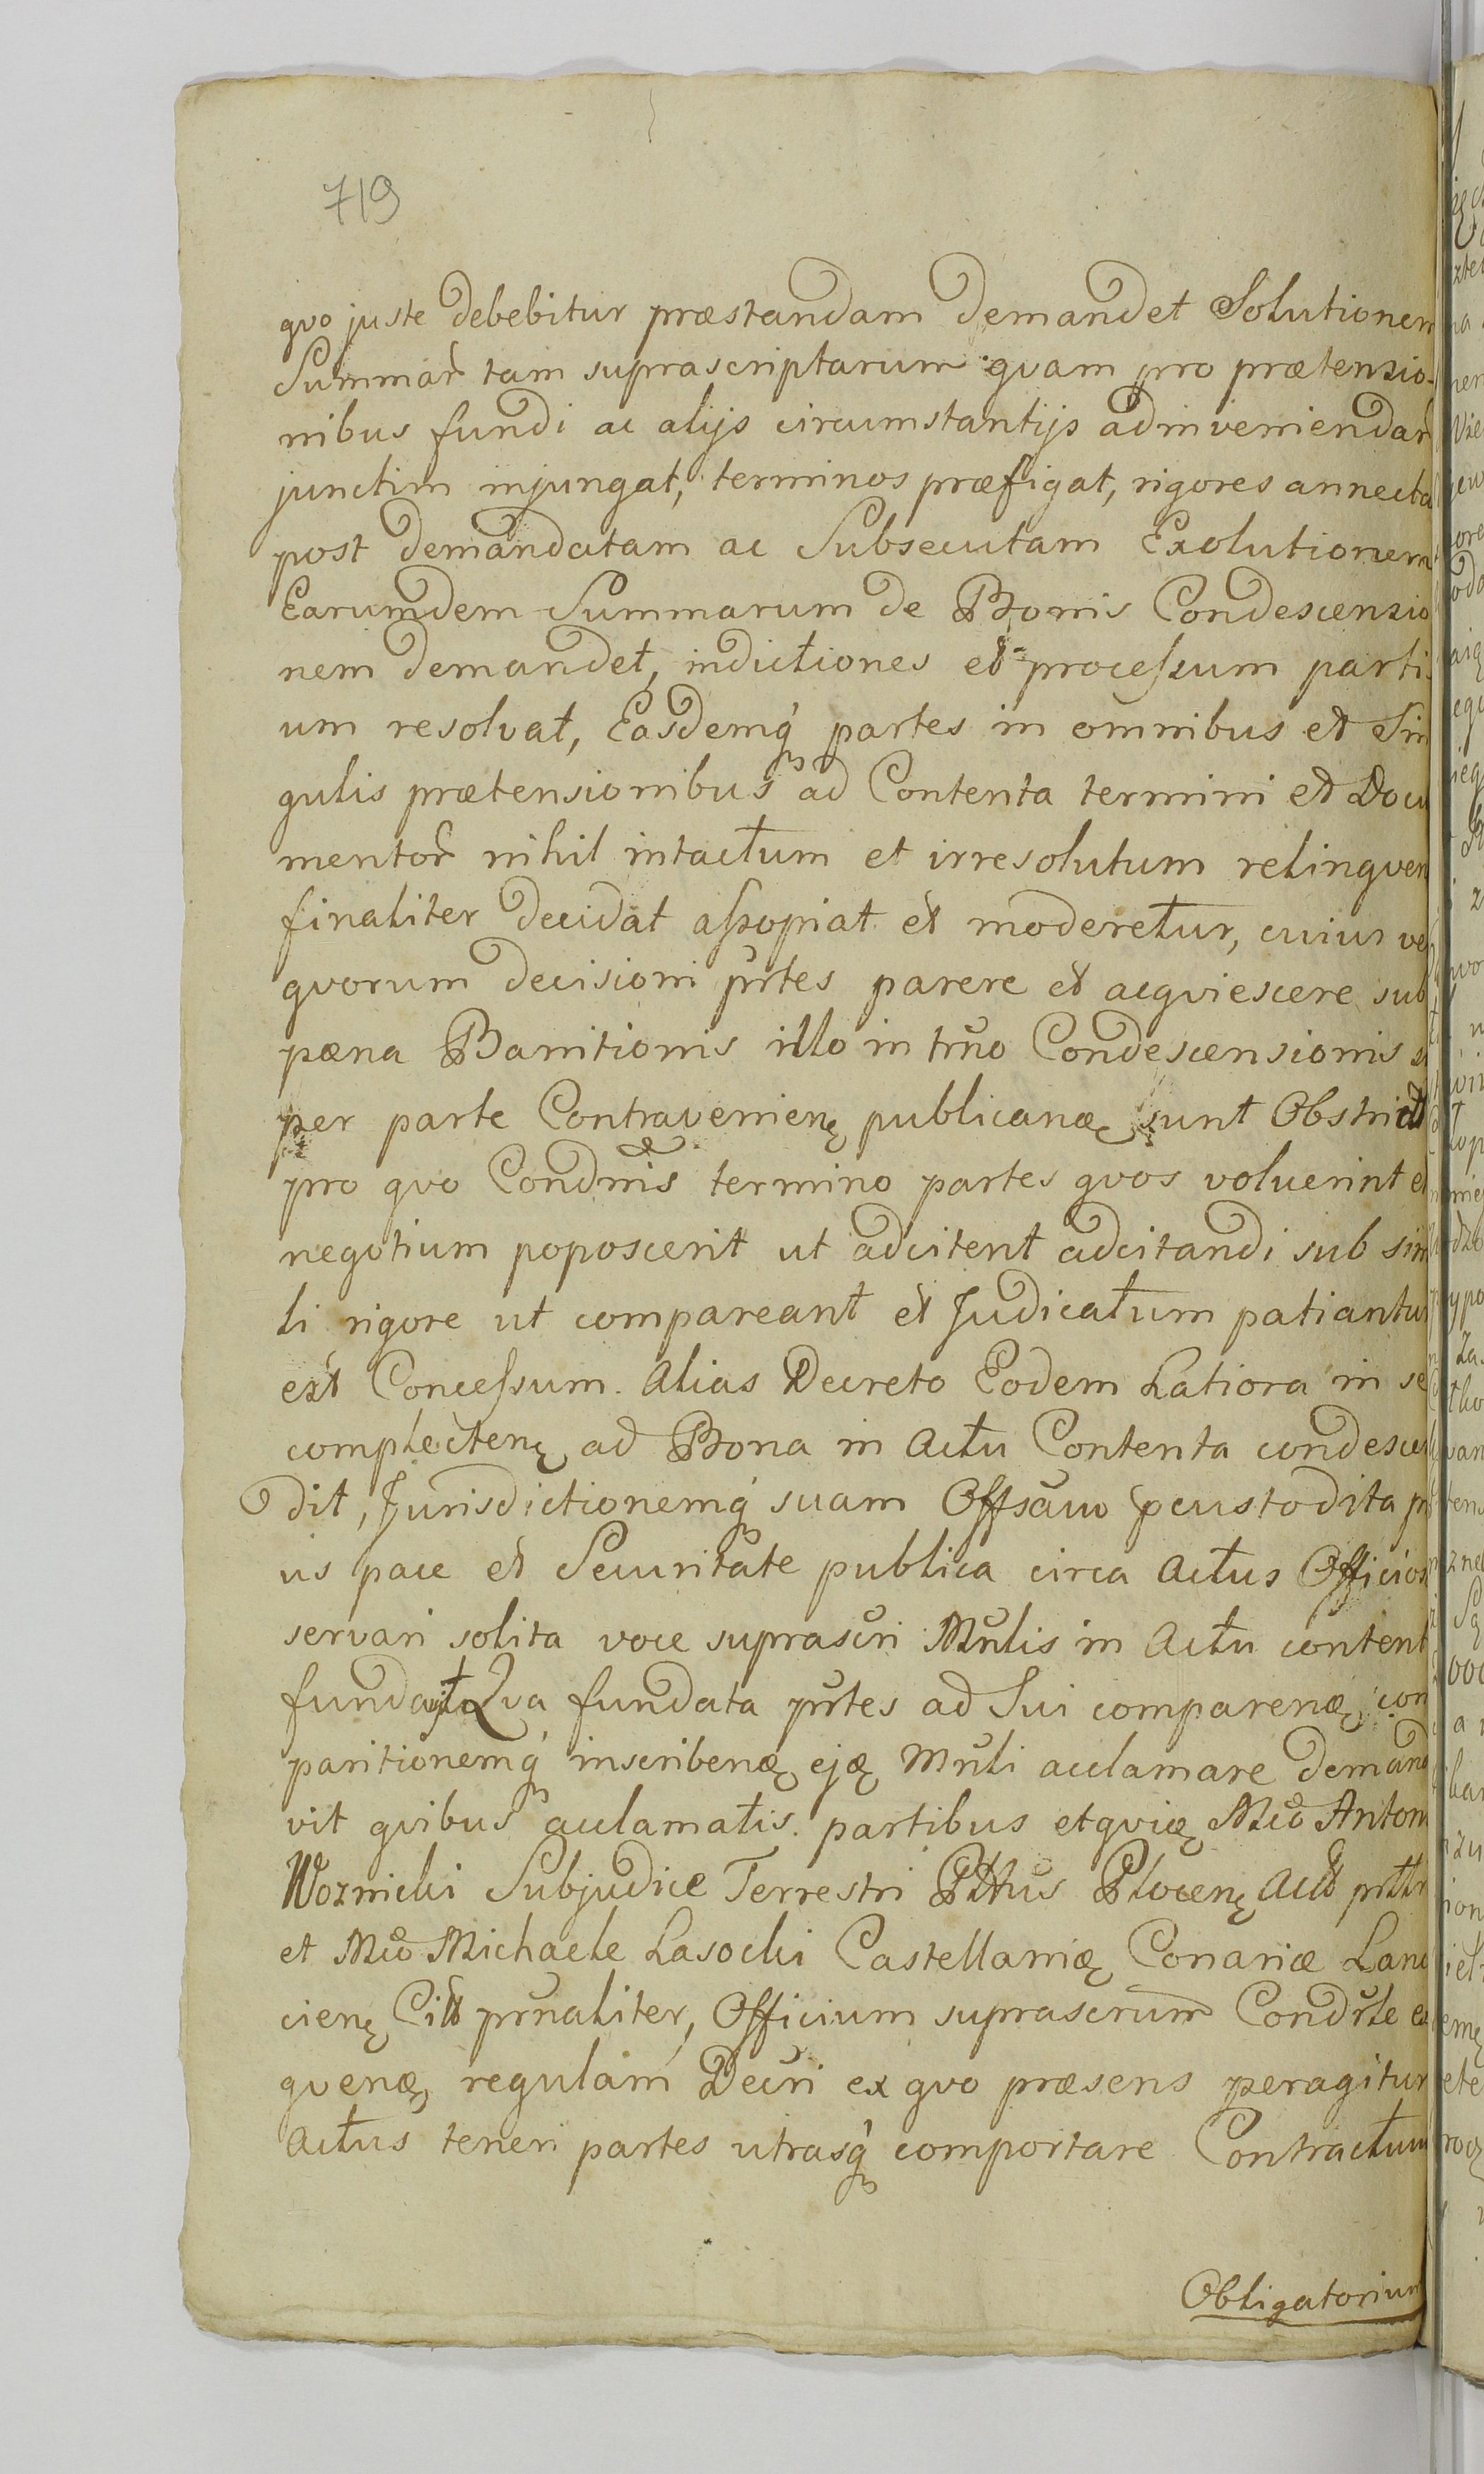 719
qvo juste debebitur præstandam demandet Solutionem
Summar̃ tam suprascriptarum qvam pro prætensio-
nibus fundi ac alijs circumstantijs adinveniendar̃
junctim injungat, terminos præfigat, rigores annecta
post demandatam ac Subsecutam Exolutionem
Earumdem Summarum de Bonis Condescensio
nem demandet, indictiones et processum parti
um resolvat, Easdemq́ partes in omnibus et Sin
gulis prætensionibus ad Contenta termini et Docu
mentor̃ nihil intactum et irresolutum relinqven
finaliter decidat assopiat et moderetur, cuius ve
qvorum decisioni pr̃tes parere et acqviescere sub
pæna Banitionis illo in tr̃no Condescensionis s
per parte Contravenienę publicanæ sunt Obstrict
pro qvo Condnĩs termino partes qvos voluerint et
negotium poposcerit ut adcitent adcitandi sub sim
li rigore ut compareant et Judicatum patiantur
est Concessum. Alias Decreto Eodem Latiora in se
complectenę ad Bona in Actu Contenta condescen
dit, Jurisdictionemq́ suam Offsam̃ pcustodita pr
us pace et Securitate publica circa Actus Officios
servari solita voce suprascri Mnlis in Actu content
fundavit Qva fundata pr̃tes ad Sui comparenæ, com
paritionemq́ inscribenæ, ejæ Mnli acclamare demand
vit qvibus acclamatis partibus etqvidę Mco Anton
Woznicki Subjudice Terrestri Pttus Plocenę Actt prltr
et Mco Michaele Lasocki Castellanię Conariæ Lanc
cienę Citt prnaliter, Officium suprascrum Condr̃le ex
qvenæ, regulam Decri ex qvo præsens peragitur
Actus teneri partes utrasq́ comportare Contractum
Obligatorium